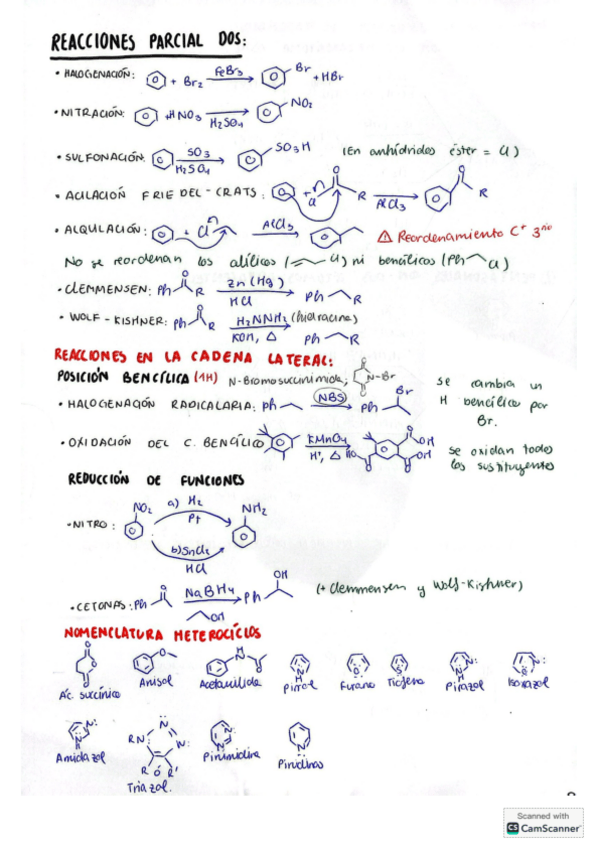 REACCIONES PARCIAL DOS:
• HALOGENACIÓN: + Br2 FeBr3 Br + HBr
• NITRACIÓN: + HNO3 H2SO4 NO2
• SULFONACIÓN: SO3 H2SO4 SO3H (En anhídridos éster = Cl)
• ACILACIÓN FRIEDEL-CRATS: + Cl O R AlCl3 O R
• ALQUILACIÓN: + Cl AlCl3 ⚠ Reordenamiento C+ 3rio
No se reordenan los alílicos ( Cl) ni bencílicos (Ph Cl)
• CLEMMENSEN: Ph O R Zn(Hg) HCl Ph R
• WOLF-KISHNER: Ph O R H2NNH2 (hidracina) KOH, Δ Ph R
REACCIONES EN LA CADENA LATERAL:
POSICIÓN BENCÍLICA (1H) N-Bromosuccinimida; O N-Br O
• HALOGENACIÓN RADICALARIA: Ph NBS Ph Br se cambia un H bencílico por Br.
• OXIDACIÓN DEL C. BENCÍLICO KMnO4 H+, Δ HO O O OH O OH se oxidan todos los sustituyentes
REDUCCIÓN DE FUNCIONES
• NITRO: NO2 a) H2 Pt b) SnCl2 HCl NH2
• CETONAS: Ph O NaBH4 OH Ph OH (+ Clemmensen y Wolf-Kishner)
NOMENCLATURA HETEROCÍCLOS
Ác. succínico Anisol Acetanilida Pirrol Furano Tiofeno Pirazol Isoxazol
Amidazol Triazol. Pirimidina Piridinas
RN N N: R ó R'
Scanned with
CS CamScanner